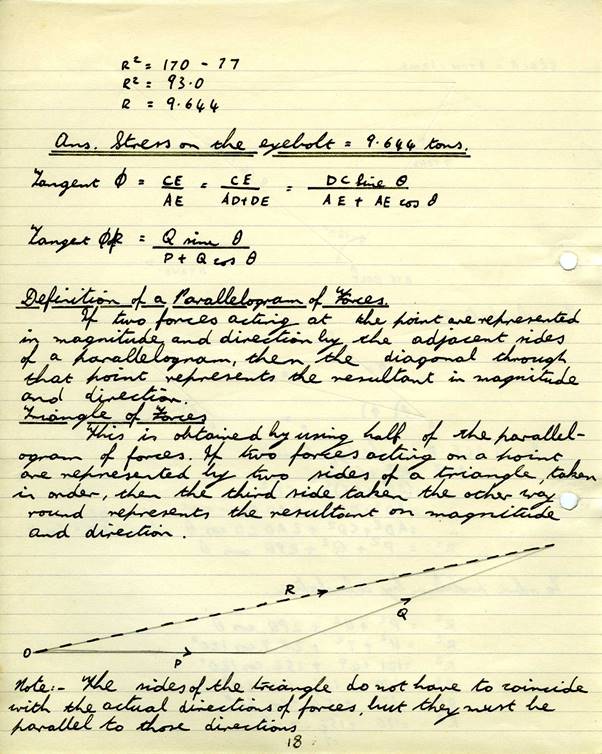 R² = 170 - 77
R² = 93.0
R = 9.644
Ans. Stress on the eyebolt = 9.644 tons.
Tangent ϕ = CE/AE = CE/AD+DE = DC Sine θ/AE + AE cos θ
Tanget ϕ = Q sine θ/P + Q cos θ
Definition of a Parallelogram of Forces.
If two forces acting at the point are represented
in magnitude and direction by the adjacent sides
of a parallelogram, then the diagonal through
that point represents the resultant in magnitude
and direction.
Triangle of Forces
This is obtained by using half of the parallel-
ogram of forces. If two forces acting on a point
are represented by two sides of a triangle, taken
in order, then the third side taken the other way
round represents the resultant on magnitude
and direction.
R
Q
O
P
Note:- The sides of the triangle do not have to coincide
with the actual directions of forces, but they must be
parallel to those directions
18